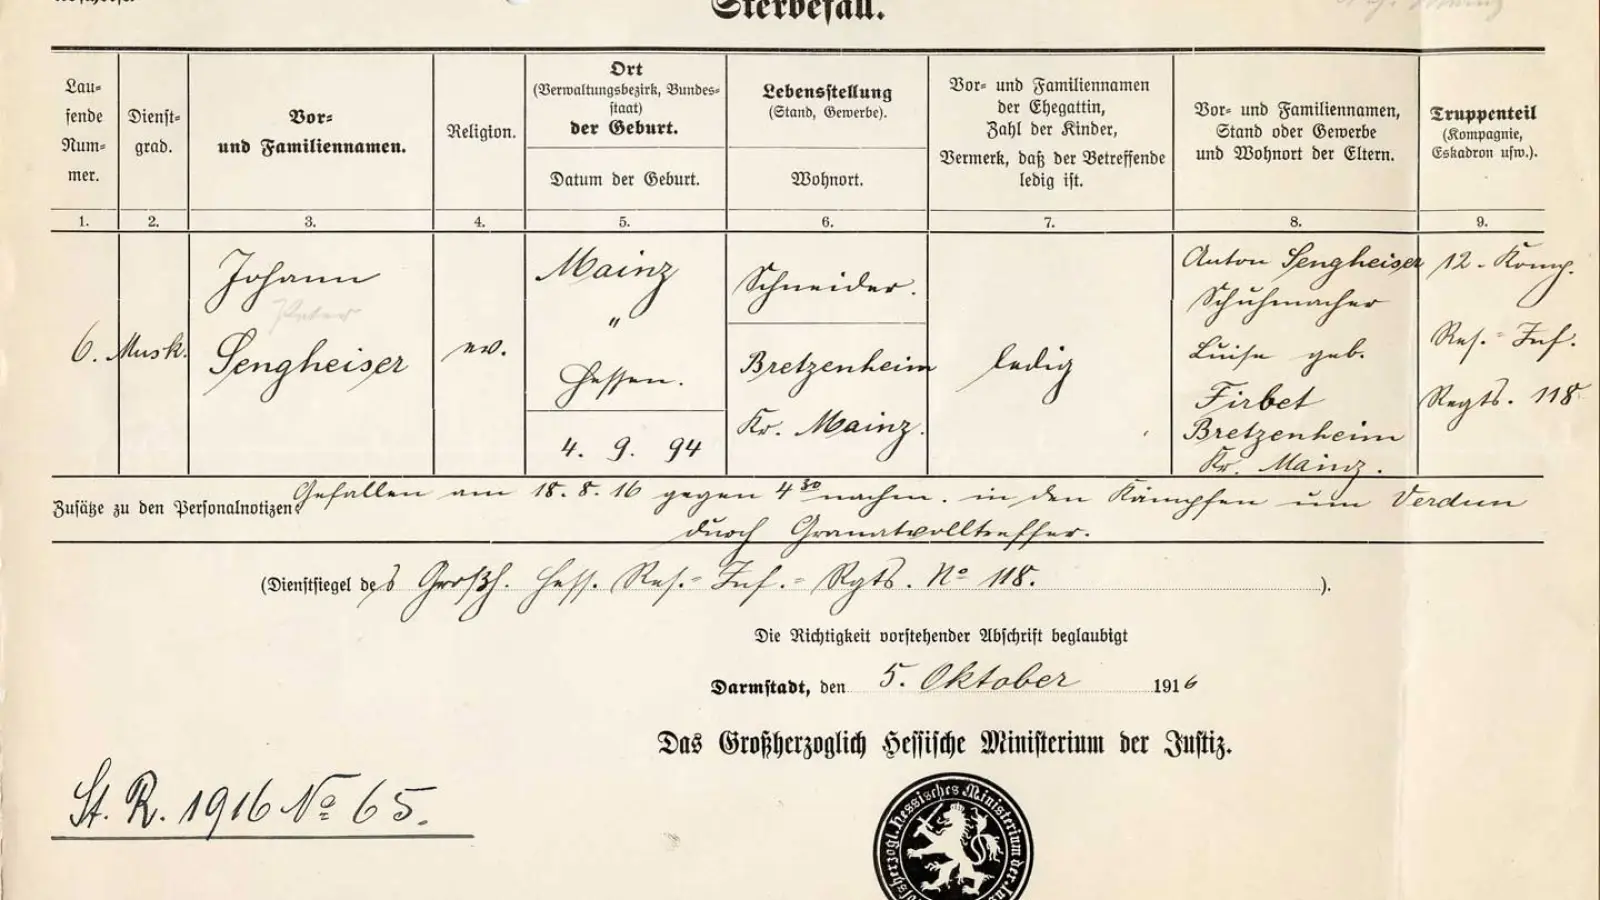 Sterbefall.
Lau=
fende
Num=
mer.
Dienst=
grad.
Vor=
und Familiennamen.
Religion.
Ort
(Verwaltungsbezirk, Bundes=
staat)
der Geburt.
Datum der Geburt.
Lebensstellung
(Stand, Gewerbe).
Wohnort.
Vor= und Familiennamen
der Ehegattin,
Zahl der Kinder,
Vermerk, daß der Betreffende
ledig ist.
Vor= und Familiennamen,
Stand oder Gewerbe
und Wohnort der Eltern.
Truppenteil
(Kompagnie,
Eskadron usw.).
1. 2. 3. 4. 5. 6. 7. 8. 9.
6.
Musk.
Johann
Peter
Sengheiser
ev.
Mainz
"
Hessen.
4. 9. 94
Schneider.
Bretzenheim
Kr. Mainz.
ledig
Anton Sengheiser
Schuhmacher
Luise geb.
Firbet
Bretzenheim
Kr. Mainz.
12 - Komp.
Res.= Inf.
Regts. 118
Zusätze zu den Personalnotizen: Gefallen am 18. 8. 16 gegen 4 30 nachm. in den Kämpfen um Verdun
durch Granatvolltreffer.
(Dienstsiegel des Großh. Hess. Res.= Inf.= Rgts. No 118. ).
Die Richtigkeit vorstehender Abschrift beglaubigt
Darmstadt, den 5. Oktober 1916
Das Großherzoglich Hessische Ministerium der Justiz.
St. R. 1916 No 65.
Hessisches Ministerium der